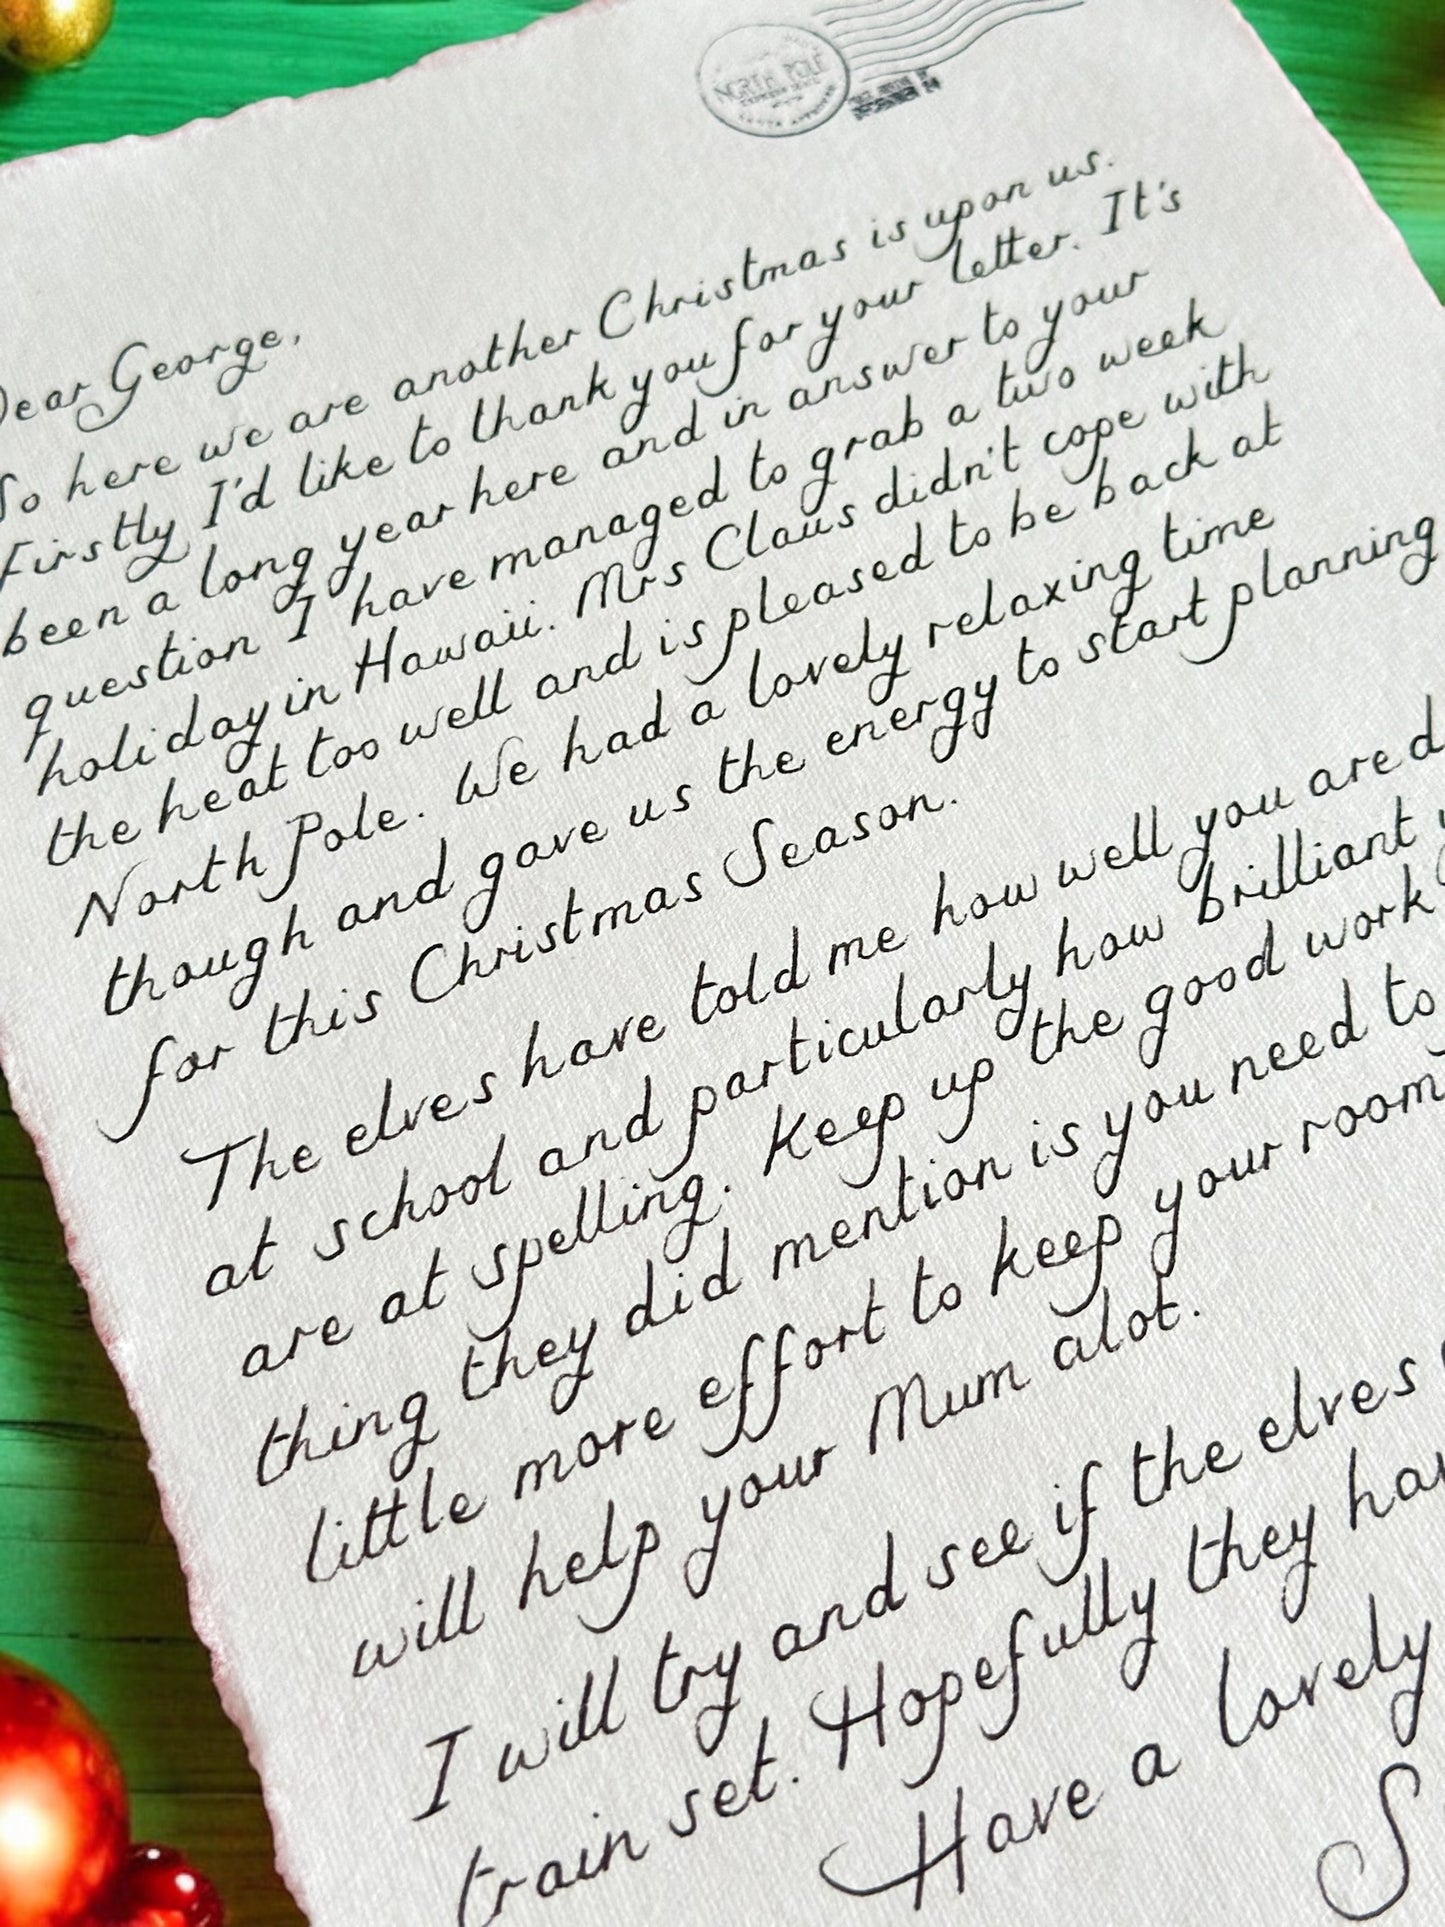 NORTH POLE
DECEMBER 24
Dear George,
So here we are another Christmas is upon us.
Firstly I'd like to thank you for your letter. It's
been a long year here and in answer to your
question I have managed to grab a two week
holiday in Hawaii. Mrs Claus didn't cope with
the heat too well and is pleased to be back at
North Pole. We had a lovely relaxing time
though and gave us the energy to start planning
for this Christmas Season.
The elves have told me how well you are d
at school and particularly how brilliant y
are at spelling. Keep up the good work
thing they did mention is you need to
little more effort to keep your room
will help your Mum alot.
I will try and see if the elves
train set. Hopefully they ha
Have a lovely
S